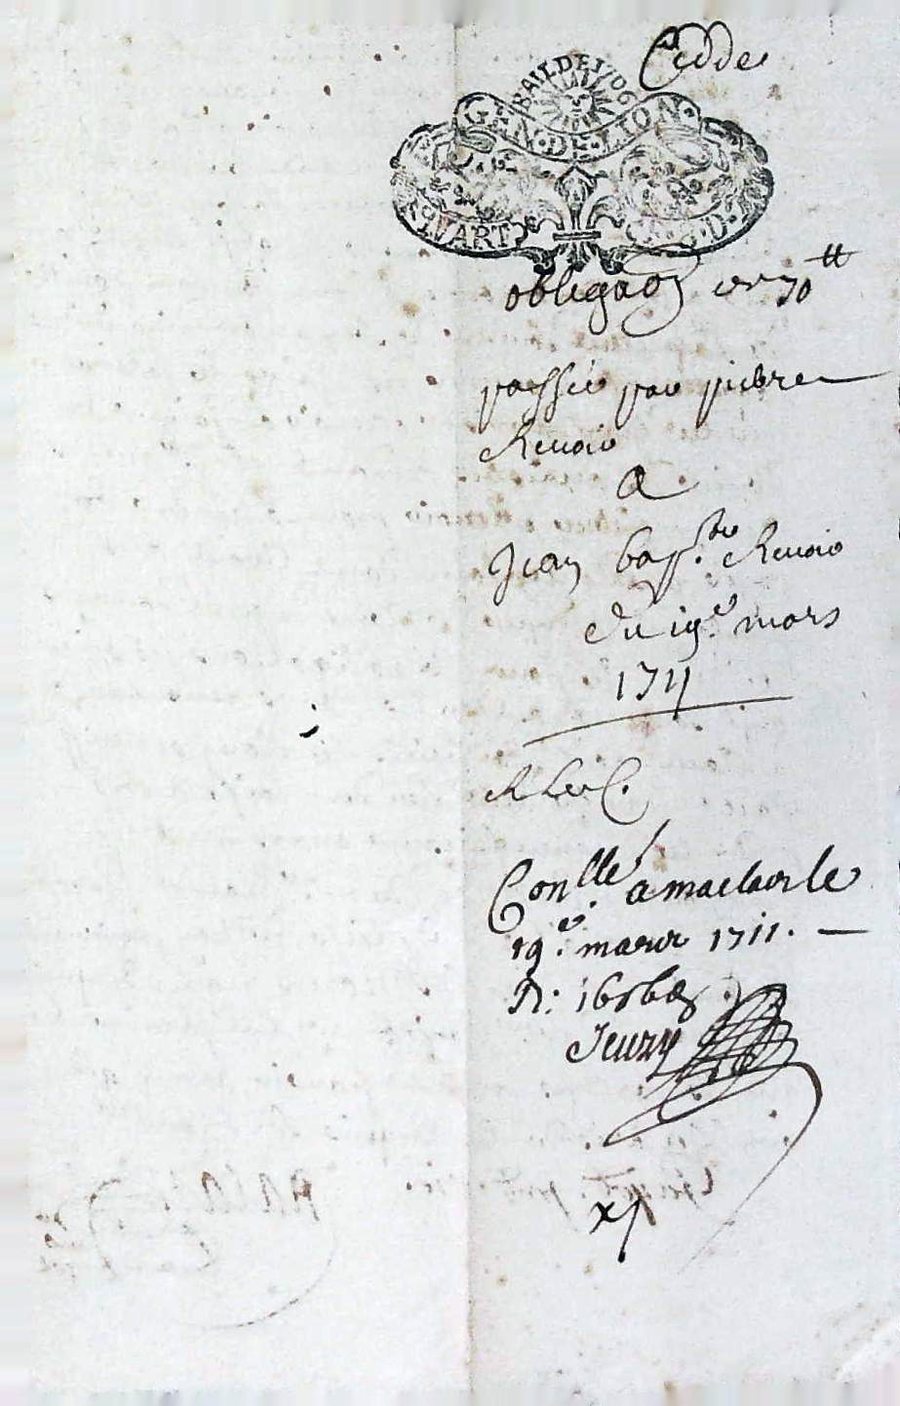 Cedde
BAIL DE 1706
GEN · DE · LION ·
QUART
obligaōn de 70 ₶
passée par pierre
Revoio
A
Jean bap.te Revoio
du 19.e mars
1711
Con.llé a maclas le
19.e mars 1711. —
R: